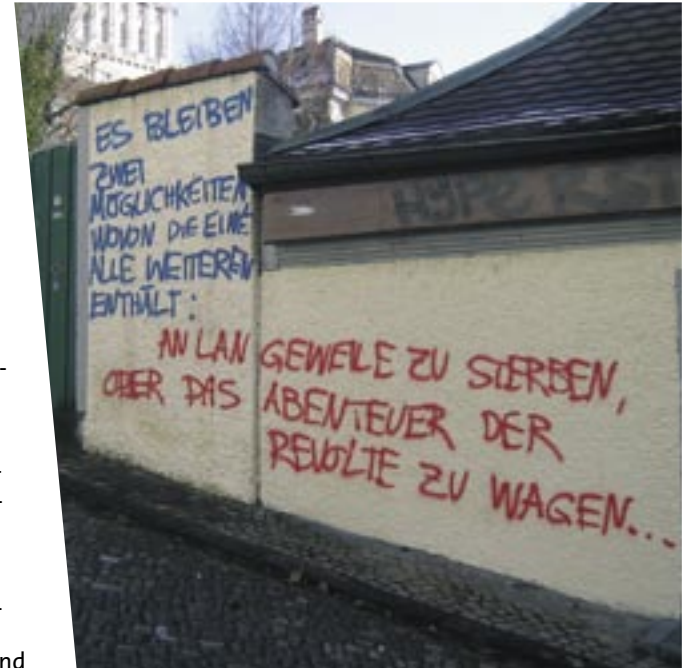 ES BLEIBEN
ZWEI
MÖGLICHKEITEN
WOVON DIE EINE
ALLE WEITEREN
ENTHÄLT:
AN LANGEWEILE ZU STERBEN,
ODER DAS ABENTEUER DER
REVOLTE ZU WAGEN...
HYPE RST
nd